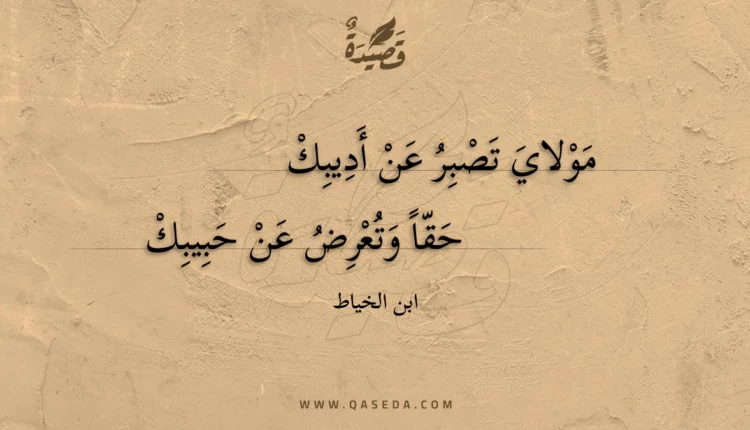 قَصِيدَةٌ
مَوْلايَ تَصْبِرُ عَنْ أَدِيبِكْ
حَقّاً وَتُعْرِضُ عَنْ حَبِيبِكْ
ابن الخياط
WWW.QASEDA.COM